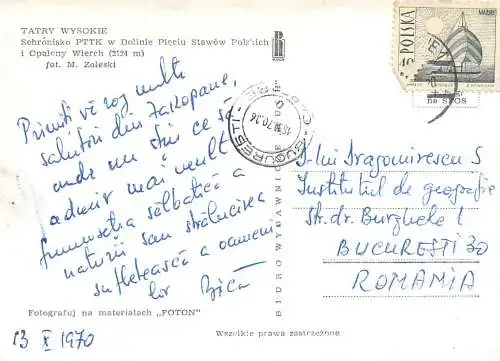 TATRY WYSOKIE
Schronisko PTTK w Dolinie Pięciu Stawów Polskich
i Opalony Wierch (2124 m)
fot. M. Zaleski
POLSKA
BUCUREȘTI
Primiți vă rog multe
salutări din Zakopane,
unde nu știu ce să
admir mai mult
frumusețea sălbatică a
naturii sau strălucirea
sufletească a oameni
lor
D-lui Dragomirescu S
Institutul de geografie
str. dr. Burghele 1
BUCUREȘTI 30
ROMANIA
BIURO WYDAWNICZE
Fotografuj na materiałach „FOTON"
13 X 1970
Wszelkie prawa zastrzeżone